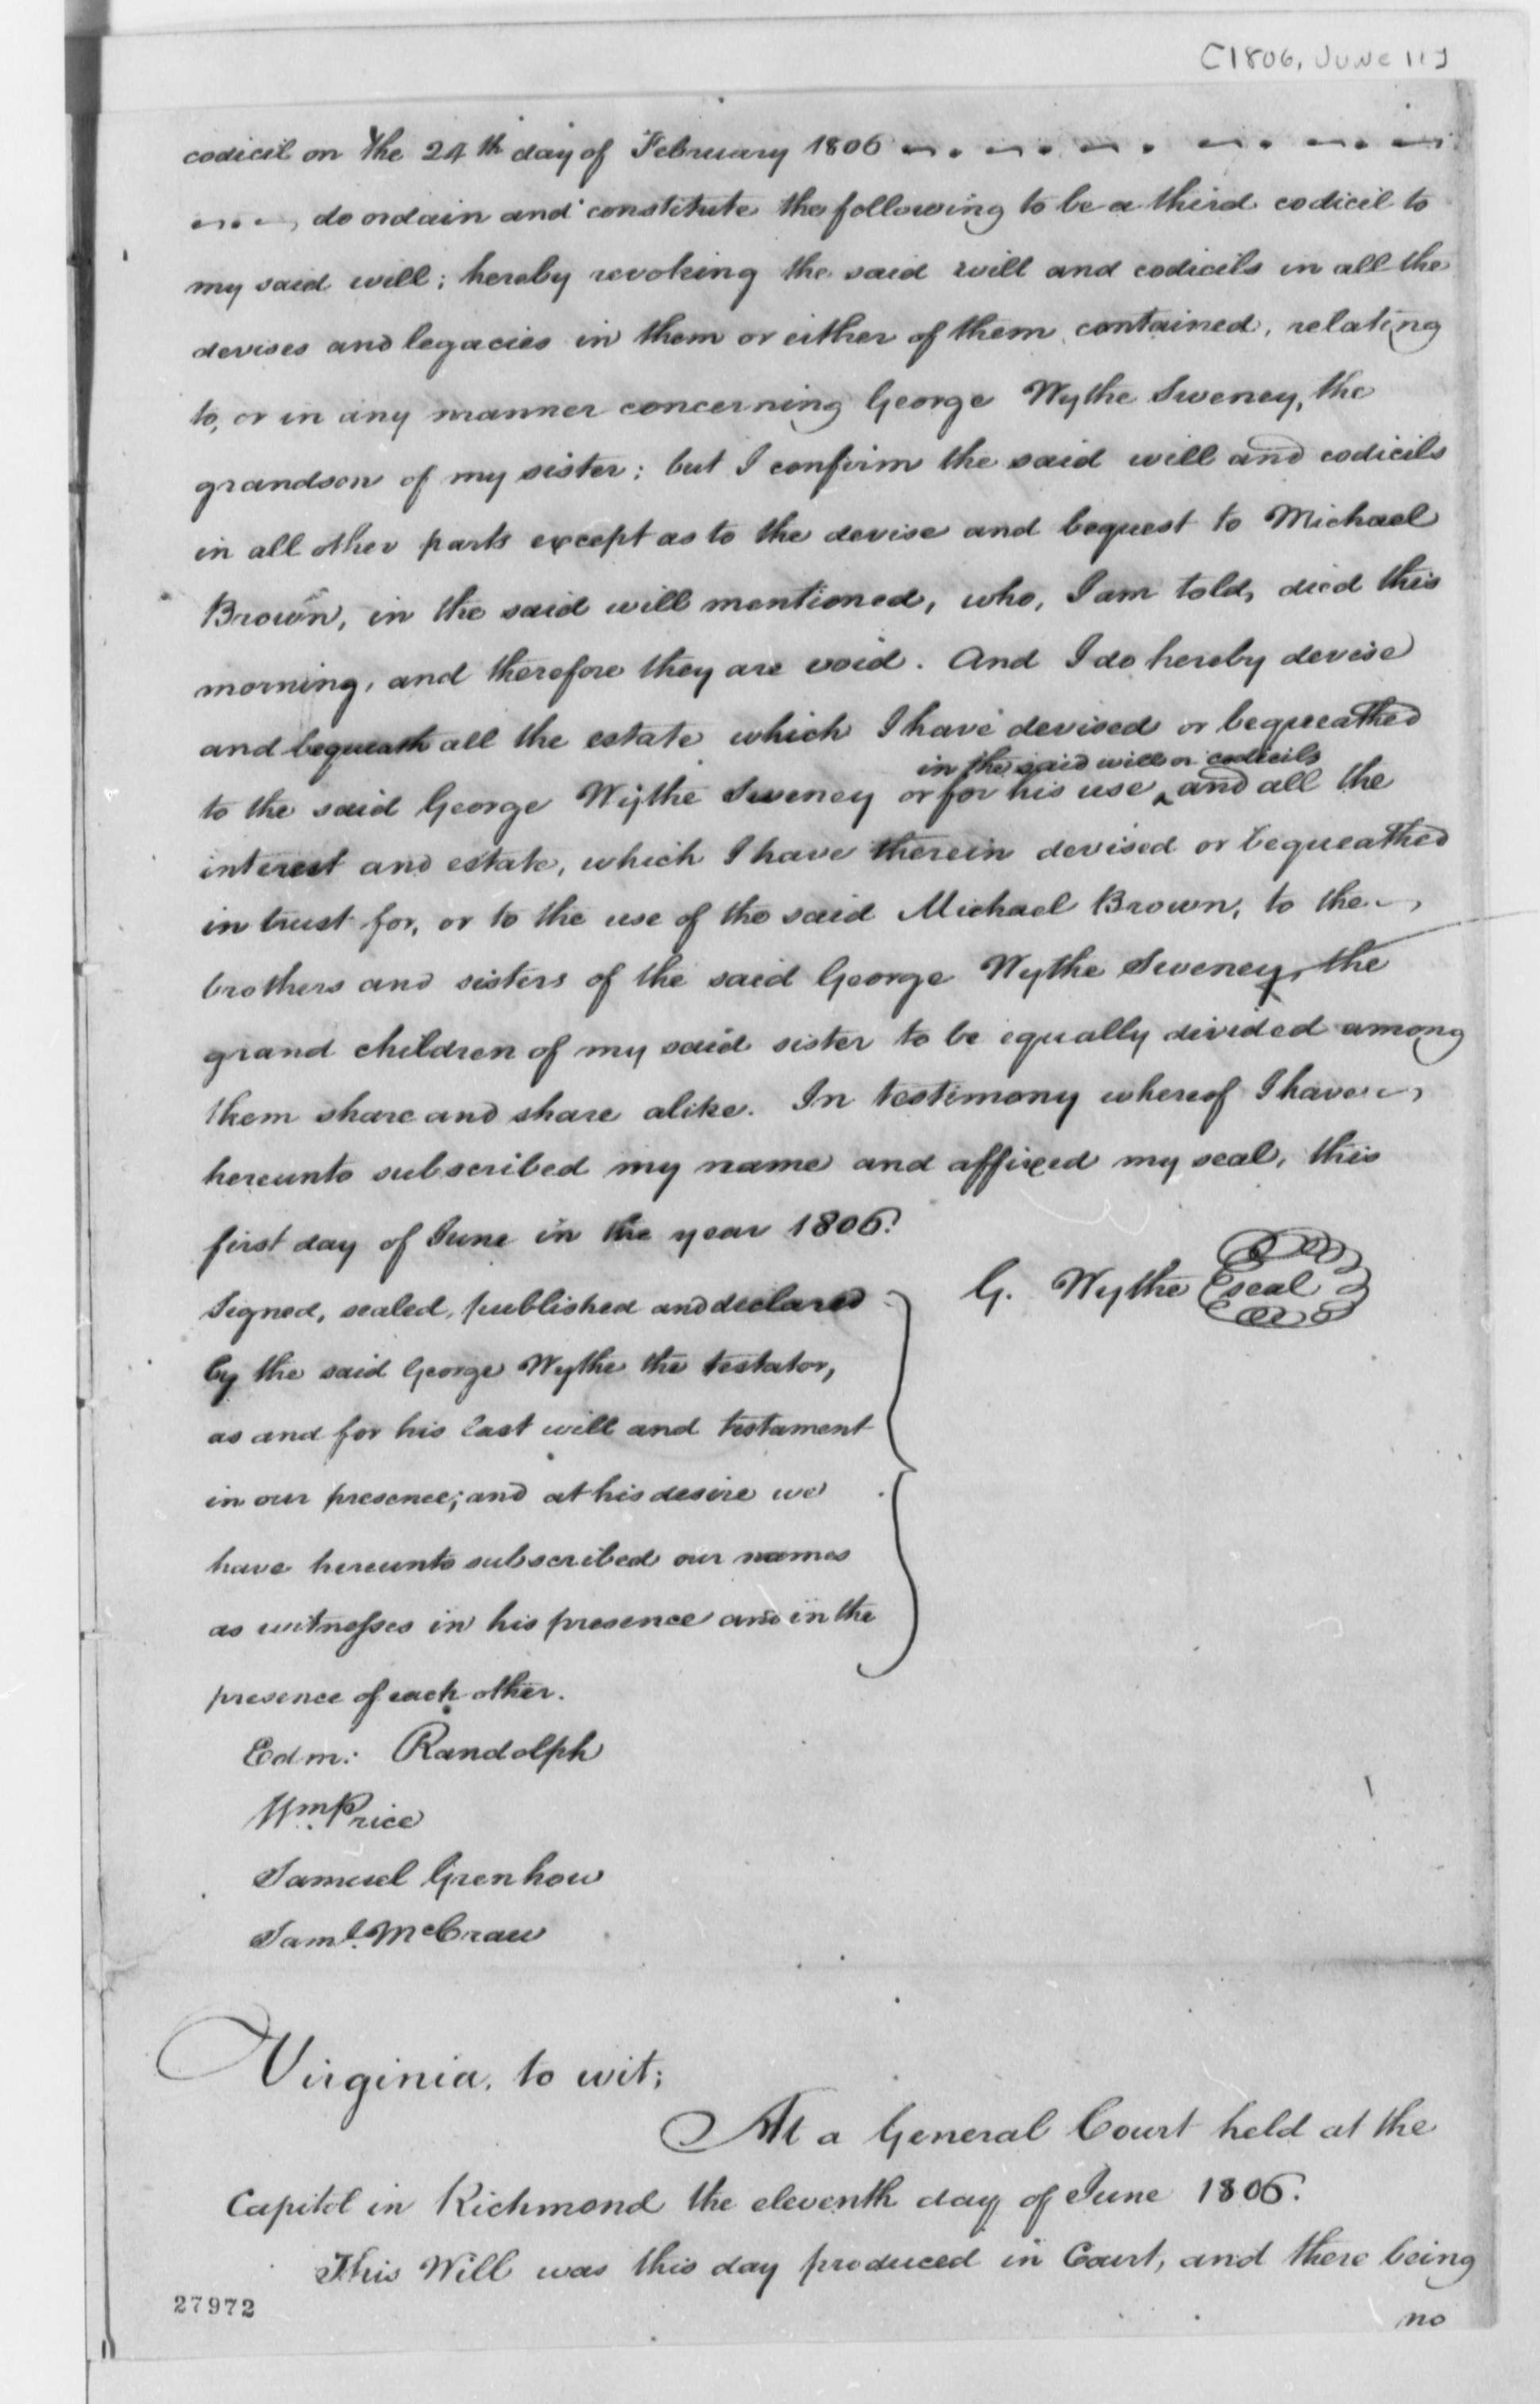 [1806, June 11]
codicil on the 24th day of February 1806
do ordain and constitute the following to be a third codicil to
my said will; hereby revoking the said will and codicils in all the
devises and legacies in them or either of them contained, relating
to, or in any manner concerning George Wythe Sweney, the
grandson of my sister; but I confirm the said will and codicils
in all other parts except as to the devise and bequest to Michael
Brown, in the said will mentioned, who, I am told, died this
morning, and therefore they are void. And I do hereby devise
and bequeath all the estate which I have devised or bequeathed
in the said will or codicils
to the said George Wythe Sweney or for his use ‸ and all the
interest and estate, which I have therein devised or bequeathed
in trust for, or to the use of the said Michael Brown, to the
brothers and sisters of the said George Wythe Sweney, the
grand children of my said sister to be equally divided among
them share and share alike. In testimony whereof I have
hereunto subscribed my name and affixed my seal, this
first day of June in the year 1806.
G. Wythe seal
Signed, sealed, published and declared
by the said George Wythe the testator,
as and for his last will and testament
in our presence; and at his desire we
have hereunto subscribed our names
as witnesses in his presence and in the
presence of each other.
Edm: Randolph
Wm. Price
Samuel Grenhow
Saml. McCraw
Virginia, to wit;
At a General Court held at the
Capitol in Richmond the eleventh day of June 1806.
This Will was this day produced in Court, and there being
no
27972